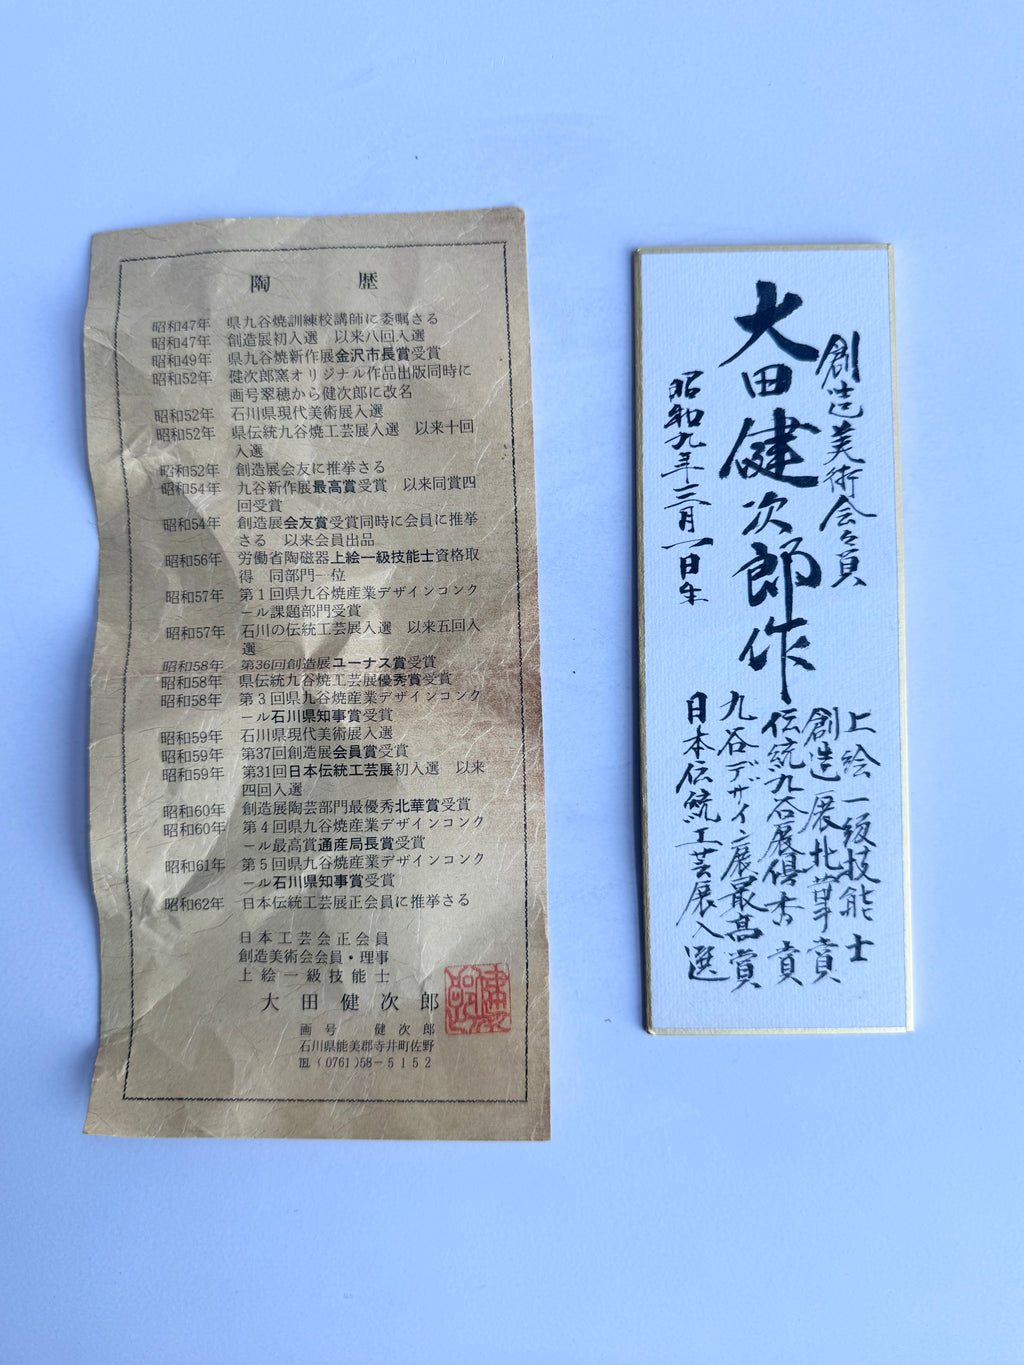 陶歴
昭和47年 県九谷焼訓練校講師に委嘱さる
昭和47年 創造展初入選 以来八回入選
昭和49年 県九谷焼新作展金沢市長賞受賞
昭和52年 健次郎窯オリジナル作品出版同時に
画号翠穂から健次郎に改名
昭和52年 石川県現代美術展入選
昭和52年 県伝統九谷焼工芸展入選 以来十回
入選
昭和52年 創造展会友に推挙さる
昭和54年 九谷新作展最高賞受賞 以来同賞四
回受賞
昭和54年 創造展会友賞受賞同時に会員に推挙
さる 以来会員出品
昭和56年 労働省陶磁器上絵一級技能士資格取
得 同部門一位
昭和57年 第1回県九谷焼産業デザインコンク
ール課題部門受賞
昭和57年 石川の伝統工芸展入選 以来五回入
選
昭和58年 第36回創造展ユーナス賞受賞
昭和58年 県伝統九谷焼工芸展優秀賞受賞
昭和58年 第3回県九谷焼産業デザインコンク
ール石川県知事賞受賞
昭和59年 石川県現代美術展入選
昭和59年 第37回創造展会員賞受賞
昭和59年 第31回日本伝統工芸展初入選 以来
四回入選
昭和60年 創造展陶芸部門最優秀北華賞受賞
昭和60年 第4回県九谷焼産業デザインコンク
ール最高賞通産局長賞受賞
昭和61年 第5回県九谷焼産業デザインコンク
ール石川県知事賞受賞
昭和62年 日本伝統工芸展正会員に推挙さる
日本工芸会正会員
創造美術会会員・理事
上絵一級技能士
大田健次郎
画号 健次郎
石川県能美郡寺井町佐野
℡(0761)58-5152
創造美術会々員
大田健次郎作
昭和九年三月一日生
上絵一級技能士
創造展北華賞
伝統九谷展優秀賞
九谷デザイン展最高賞
日本伝統工芸展入選